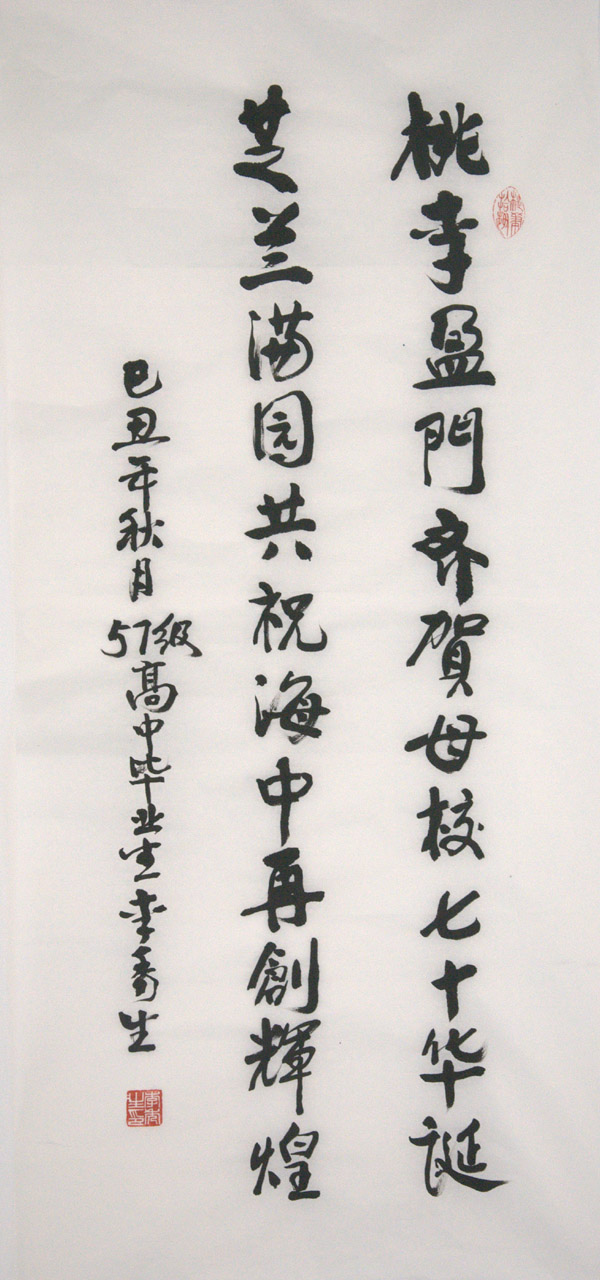 桃李盈門齐賀母校七十华诞
芝兰满园共祝海中再創輝煌
己丑年秋月57级高中毕业生李秀生